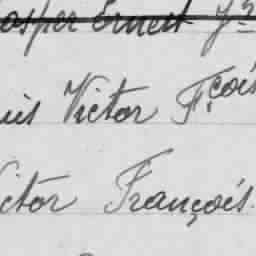 osper Ernest Jn
uis Victor Fçois
ictor François.